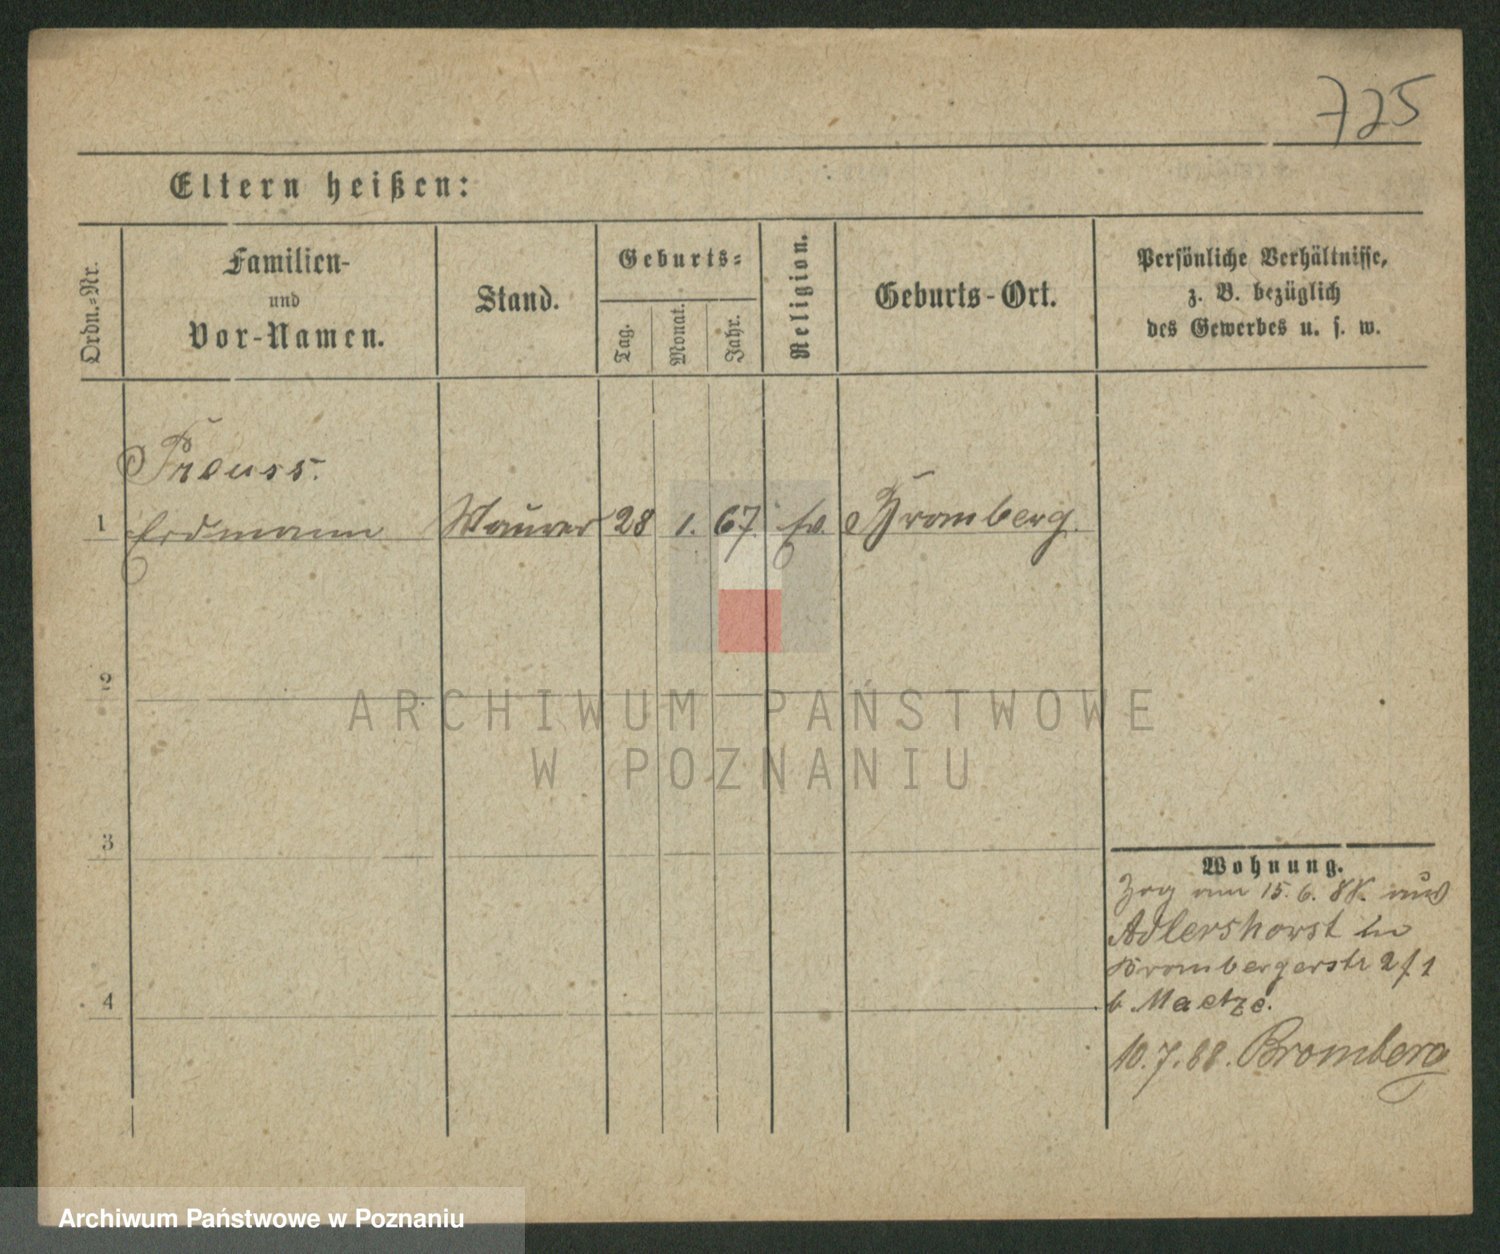 725
Eltern heißen:
Ordn.-Nr.
Familien-
und
Vor-Namen.
Stand.
Geburts-
Tag.
Monat.
Jahr.
Religion.
Geburts-Ort.
Persönliche Verhältnisse,
z. B. bezüglich
des Gewerbes u. s. w.
Preuss.
1 Erdmann Maurer 28 1. 67. ev. Bromberg.
2
3
4
Wohnung.
Zog am 15. 6. 88. aus
Adlershorst in
Brombergerstr 2/1
b. Maetze.
10. 7. 88. Bromberg
ARCHIWUM PAŃSTWOWE
W POZNANIU
Archiwum Państwowe w Poznaniu